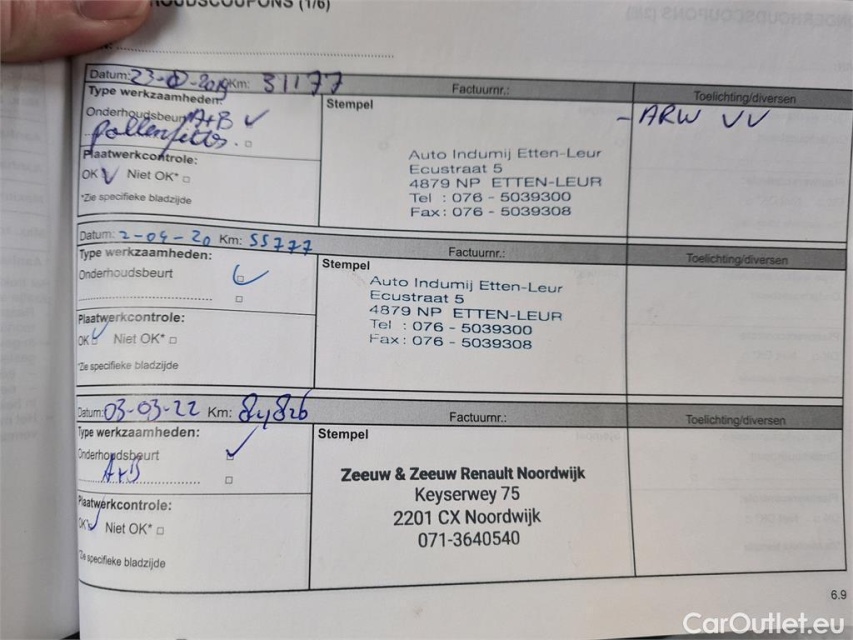 HOUDSCOUPONS (1/6)
Datum: 23- -2019 Km: 31177 Factuurnr.: Toelichting/diversen
Type werkzaamheden: Stempel
Onderhoudsbeurt A+B ✓ - ARW VV
pollenfilter. □
Plaatwerkcontrole:
OK ✓ Niet OK* □
*Zie specifieke bladzijde
Auto Indumij Etten-Leur
Ecustraat 5
4879 NP ETTEN-LEUR
Tel : 076 - 5039300
Fax : 076 - 5039308
Datum: 2-04-20 Km: 55777 Factuurnr.: Toelichting/diversen
Type werkzaamheden: Stempel
Onderhoudsbeurt ✓
□
Plaatwerkcontrole:
OK ✓ Niet OK* □
*Zie specifieke bladzijde
Auto Indumij Etten-Leur
Ecustraat 5
4879 NP ETTEN-LEUR
Tel : 076 - 5039300
Fax : 076 - 5039308
Datum: 03-03-22 Km: 84826 Factuurnr.: Toelichting/diversen
Type werkzaamheden: Stempel
Onderhoudsbeurt ✓
A+B □
Plaatwerkcontrole:
OK ✓ Niet OK* □
*Zie specifieke bladzijde
Zeeuw & Zeeuw Renault Noordwijk
Keyserwey 75
2201 CX Noordwijk
071-3640540
6.9
CarOutlet.eu